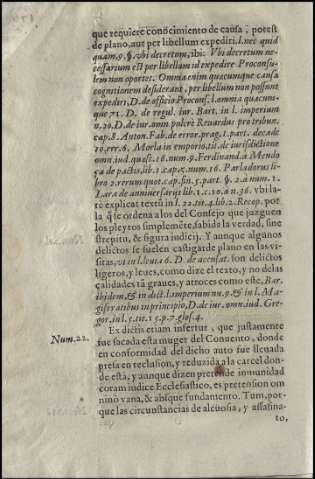 que requiere conocimiento de causa, potest
de plano, aut per libellum expediri. l. nec quid
quam. 9. §. vbi decretum, ibi: Vbi decretum ne-
cessarium est per libellum id expedire Proconsu-
lem non oportet. Omnia enim quacumque causa
cognitionem desiderant, per libellum non possunt
expediri, D. de officio Procons. l. omnia quacum-
que 71. D. de regul. iur. Bart. in l. imperium
n. 20. D. de iur. omn. pulcrè Reuardus pro tribun.
cap. 8. Anton. Fab. de error. prag. 1. part. decade
10. err. 6. Morla in emporio, tit. de iurisdictione
omn. iud. quæst. 16. num. 9. Ferdinand. à Mendo
sa de pactis, lib. 2. cap. 5. num. 16. Parladorus lib-
bro 2. rerum quot. cap. fin. 5. part. §. 2. à num. 1.
Lara de anniuersarijs lib. 1. c. 10. à n. 36. vbi la-
tè explicat textũ in l. 22. tit. 4. lib. 2. Recop. por
la q̃ se ordena a los del Consejo que juzguen
los pleytos simplemẽte, sabida la verdad, sine
strepitu, & figura iudicij. Y aunque algunos
delictos se suelen castigar de plano en las vi-
sitas, vt in l. leuta 6. D. de accusat. son delictos
ligeros, y leues, como dize el texto, y no delas
calidades tã graues, y atroces como este, Bar.
ibidem, & in dict. l. imperium nu. 9. & in l. Ma-
gistratibus in principio, D. de iur. omn. iud. Gre-
gor. in l. 5. tit. 15. p. 7. glos. 4.
Num. 22. Ex dictis etiam infertur, que justamente
fue sacada esta muger del Conuento, donde
en conformidad del dicho auto fue lleuada
presa en reclusion, y reduzida a la carcel don-
de està, y aunque dizen pretende inmunidad
coram iudice Ecclesiastico, es pretension om
nino vana, & absque fundamento. Tum, por-
que las circunstancias de aleuosia, y assasina-
to,